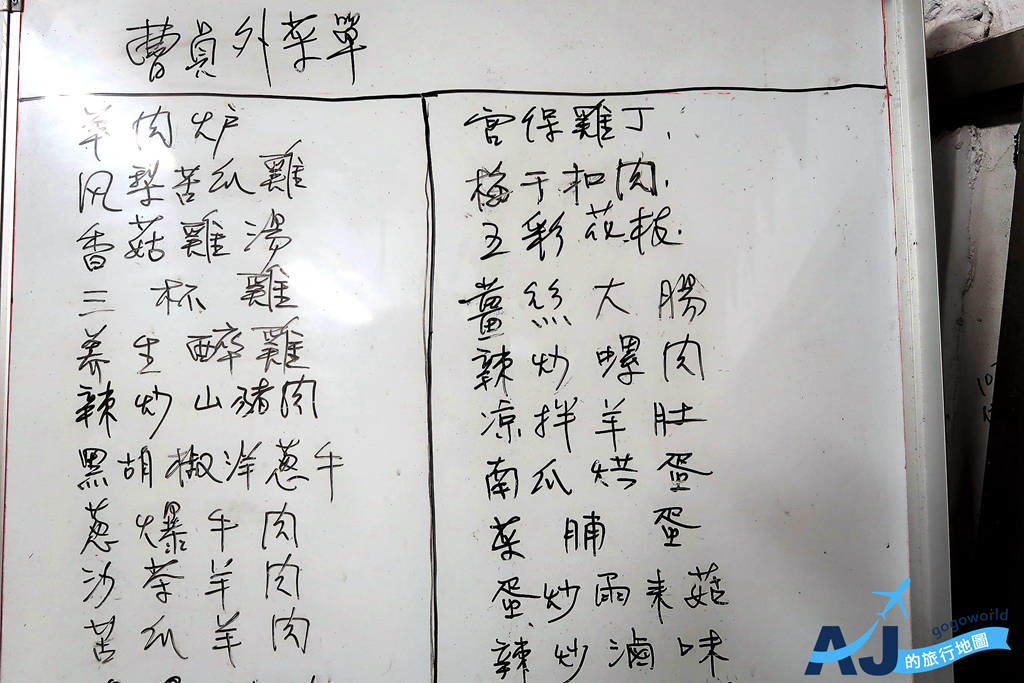 曹員外菜單
羊肉炉
凤梨苦瓜雞
香菇雞湯
三杯雞
养生醉雞
辣炒山豬肉
黑胡椒洋蔥牛
蔥爆牛肉
沙茶羊肉
苦瓜羊肉
宮保雞丁.
梅干扣肉.
五彩花枝.
薑絲大腸
辣炒螺肉
凉拌羊肚
南瓜烘蛋
菜脯蛋
蛋炒雨来菇
辣炒滷味
gogoworld
AJ的旅行地圖